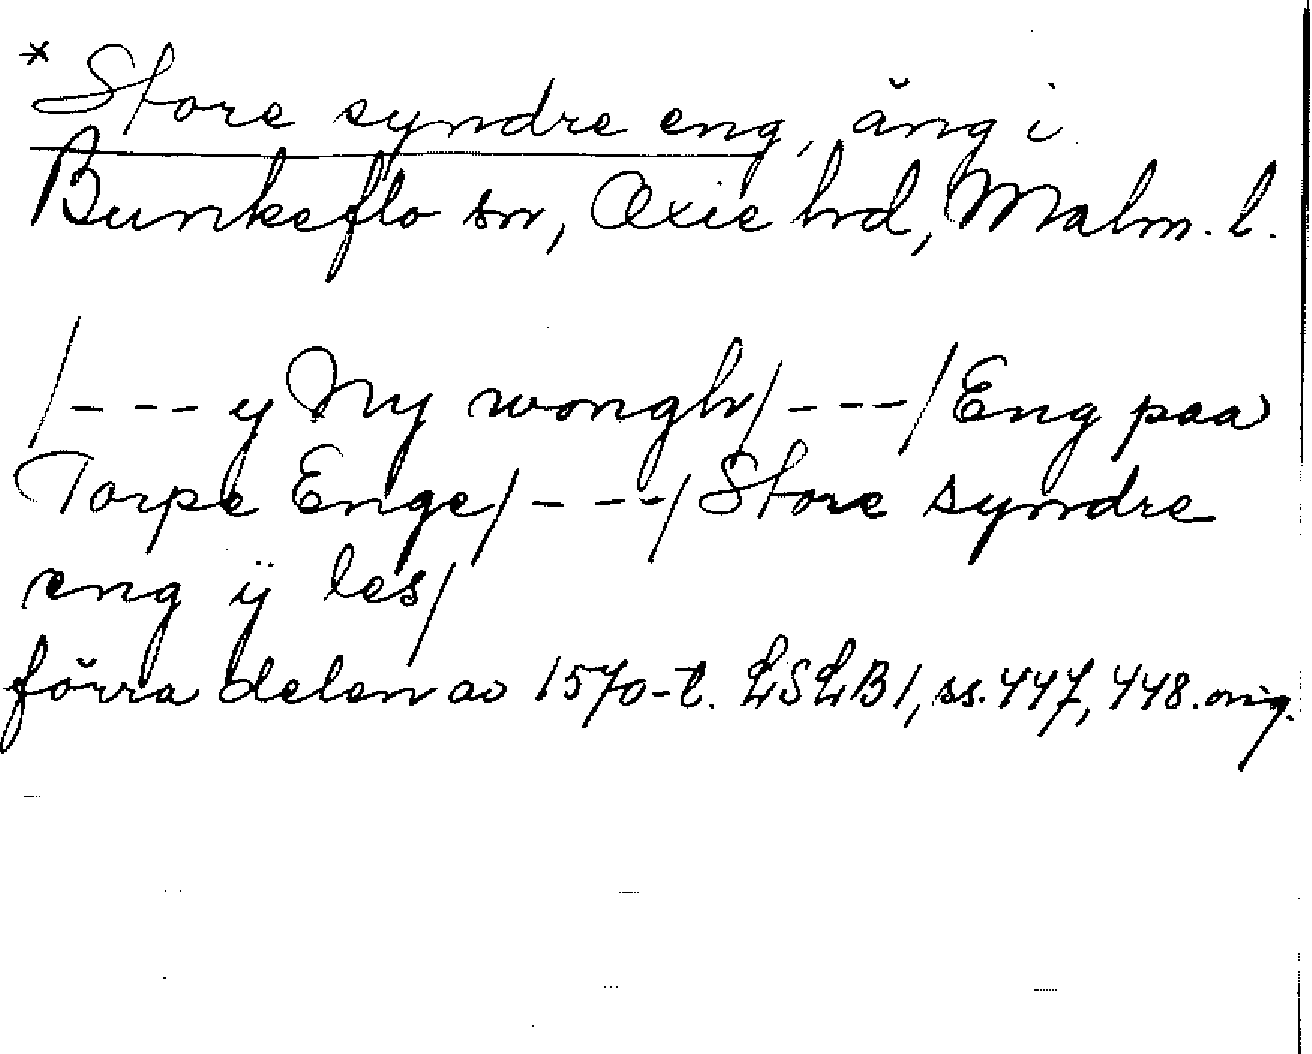 * Store syndre eng, äng i
Bunkeflo sn, Oxie hrd, Malm. l.
/--- y Ny wongh/---/Eng paa
Torpe Enge/---/Store syndre
eng ÿ les/
förra delen av 1570-t. LSLB1, ss. 447, 448. orig.